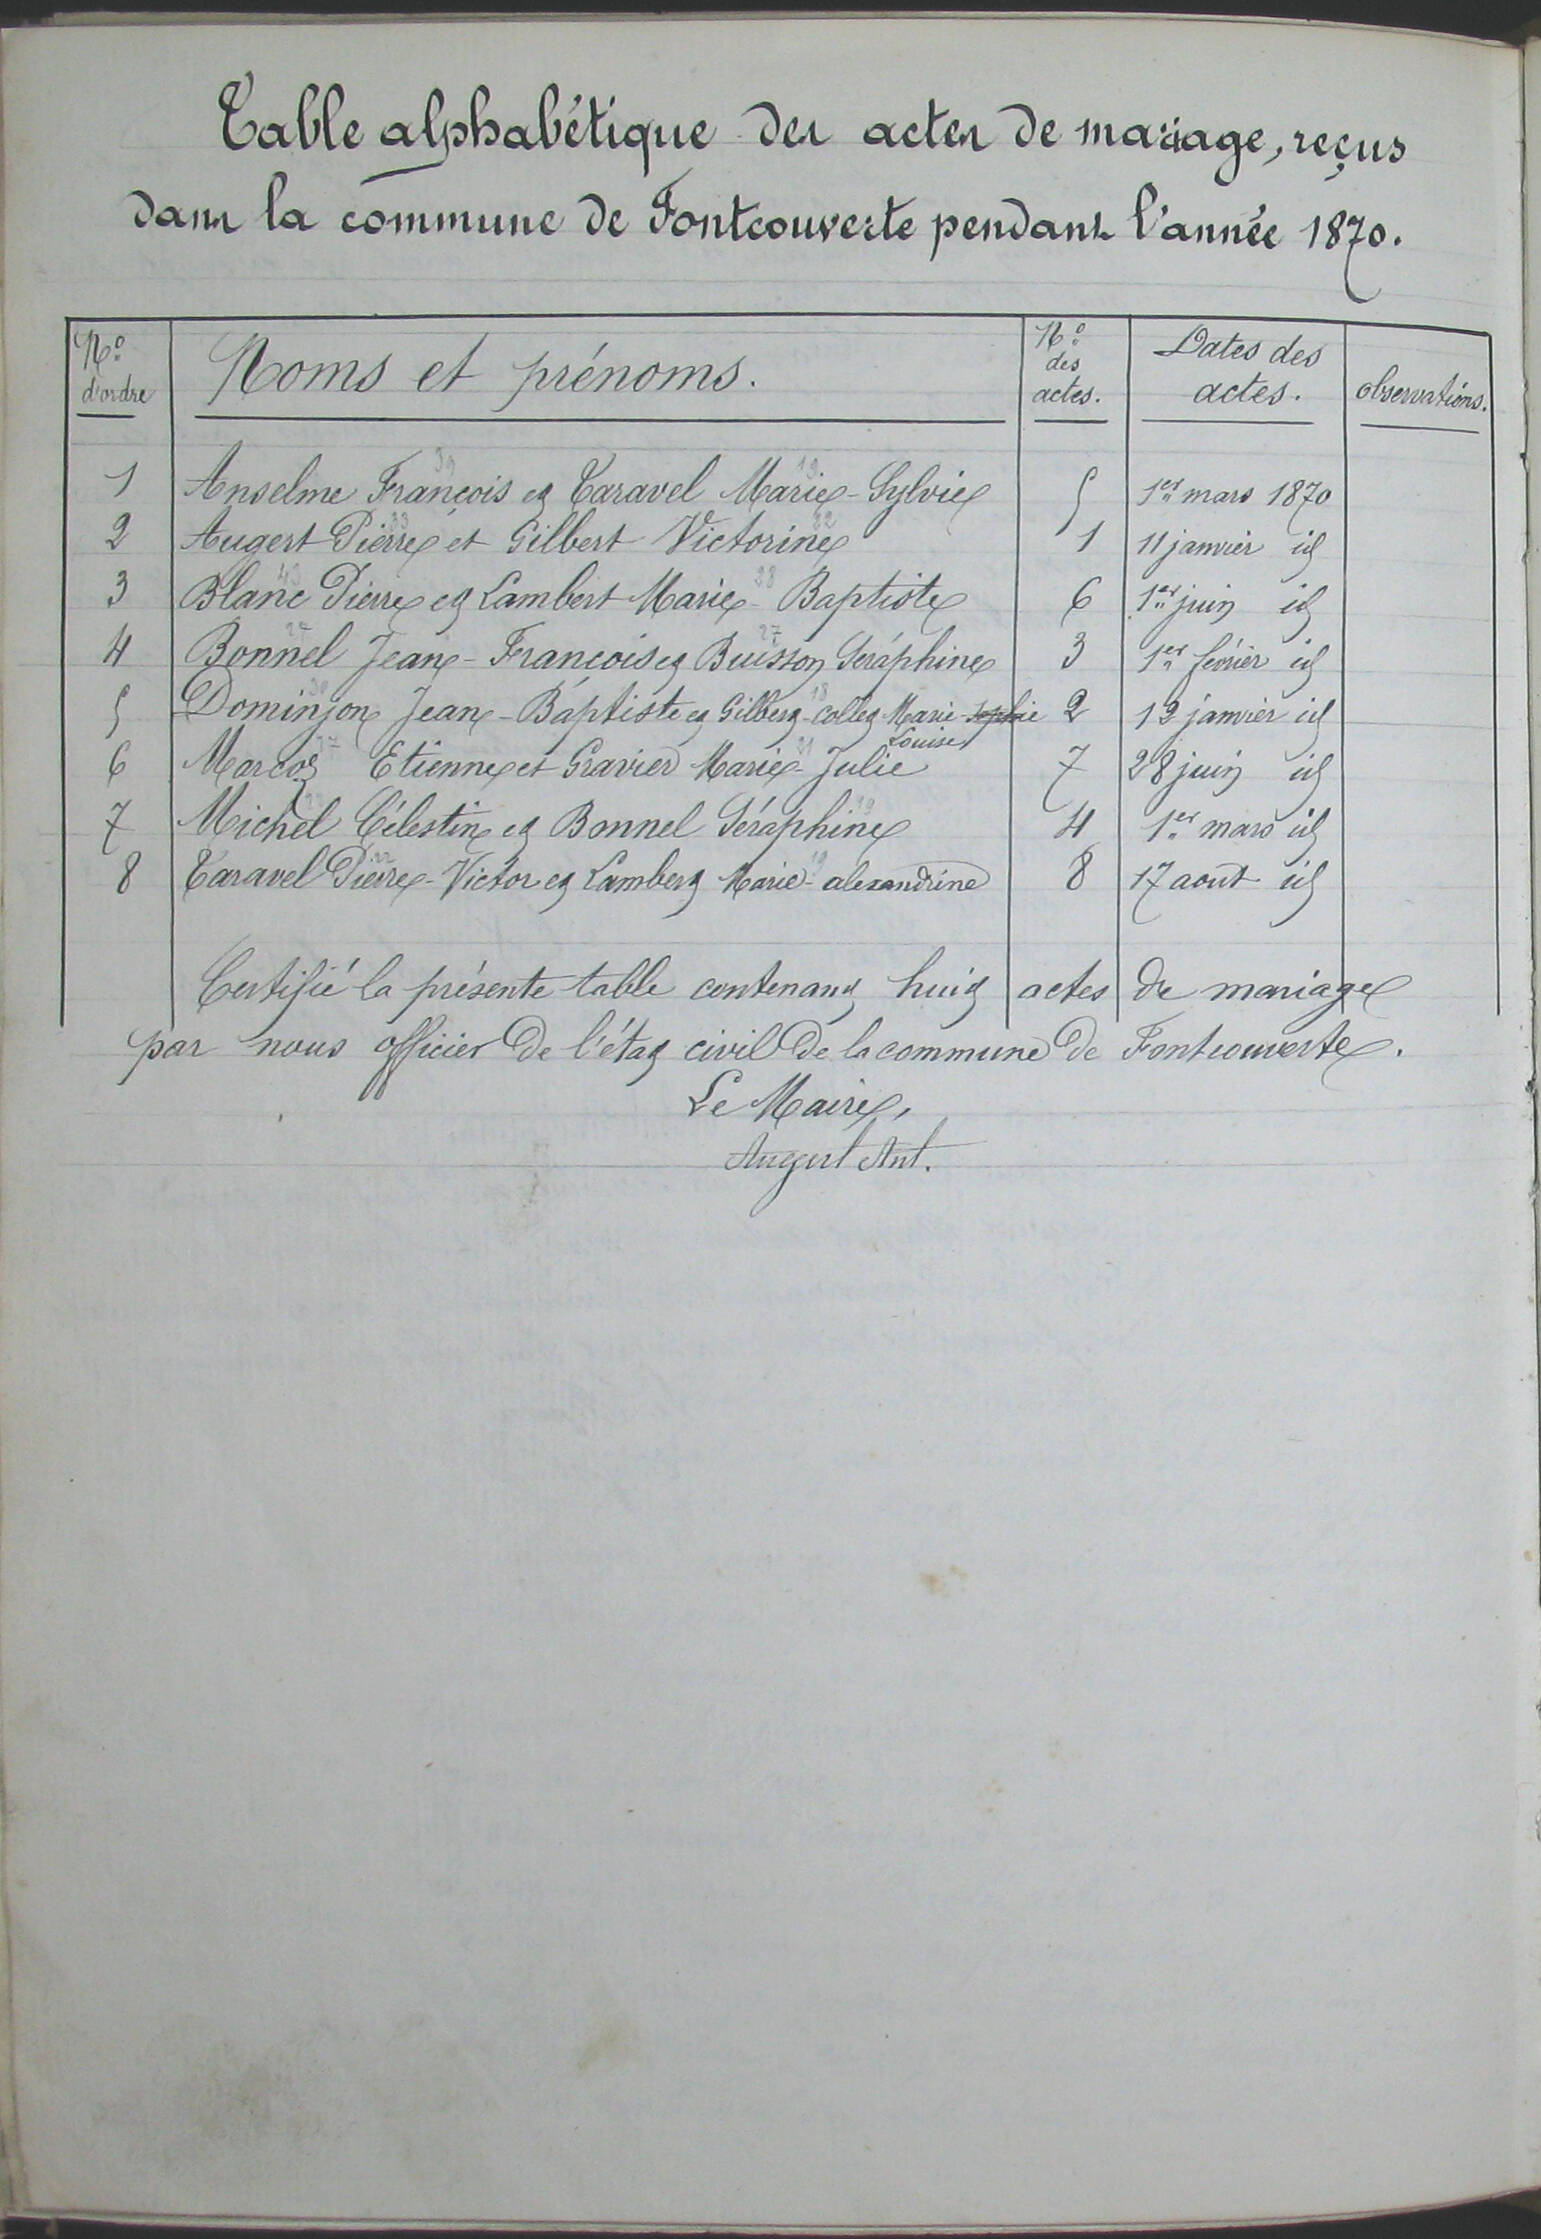 Table alphabétique des actes de mariage, reçus
dans la commune de Fontcouverte pendant l'année 1870.
No d'ordre Noms et prénoms. No des actes. Dates des actes. observations.
1 Anselme François et Taravel Marie-Sylvie 5 1er mars 1870
2 Augert Pierre et Gilbert Victorine 1 11 janvier id
3 Blanc Pierre et Lambert Marie-Baptiste 6 1er juin id
4 Bonnel Jean-François et Buisson Séraphine 3 1er février id
5 Dominjon Jean-Baptiste et Gilbert-Collet Marie-Sophie 2 12 janvier id
Louise
6 Marcoz Etienne et Gravier Marie-Julie 7 28 juin id
7 Michel Célestin et Bonnel Séraphine 4 1er mars id
8 Taravel Pierre-Victor et Lambert Marie-alexandrine 8 17 aout id
Certifié la présente table contenant huit actes de mariage
par nous officier de l'état civil de la commune de Fontcouverte.
Le Maire,
Augert Ant.